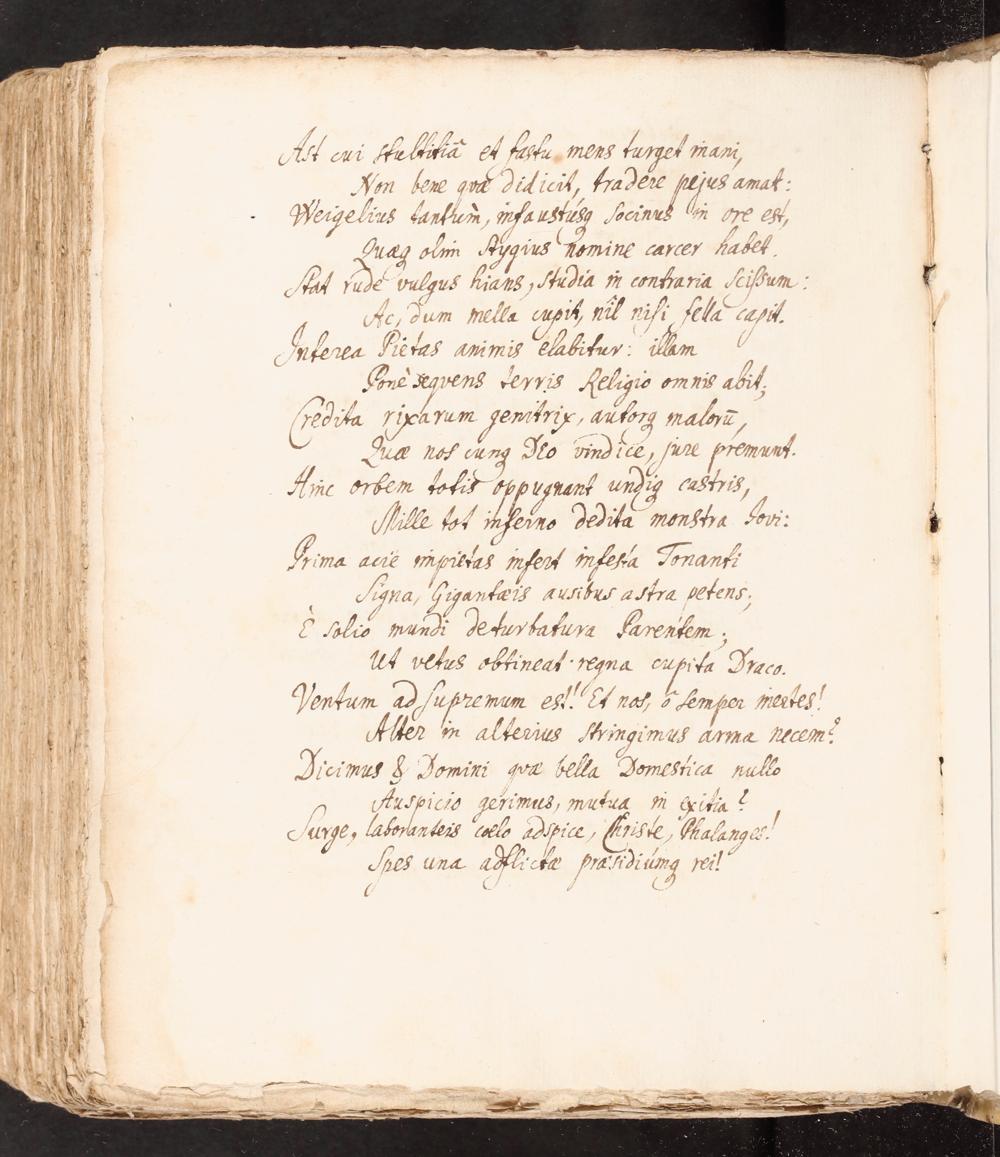 Ast cui stultitiâ et fastu mens turget inani,
Non bene quæ didicit, tradere pejus amat:
Weigelius tantum, infaustúsq Socinus in ore est,
Quæq olim Stygius nomine carcer habet.
Stat rude vulgus hians, studia in contraria scissum:
Ac, dum mella cupit, nîl nisi fella capit.
Interea Pietas animis elabitur: illam
Ponè seqvens terris Religio omnis abit;
Credita rixarum genitrix, autorq malorū,
Quæ nos cunq Deo vindice, jure premunt.
Hinc orbem totis oppugnant undiq castris,
Mille tot inferno dedita monstra Iovi:
Prima aciē impietas infert infesta Tonanti
Signa, Gigantæis ausibus astra petens;
È solio mundi deturbatura Parentem;
Ut vetus obtineat regna cupita Draco.
Ventum ad supremum est! Et nos, ô semper inertes!
Alter in alterius stringimus arma necem?
Dicimus & Domini quæ bella Domestica nullo
Auspicio gerimus, mutua in exitia?
Surge, laboranteis cœlo adspice, Christe, Phalanges!
Spes una adflictæ præsidiúmq rei!